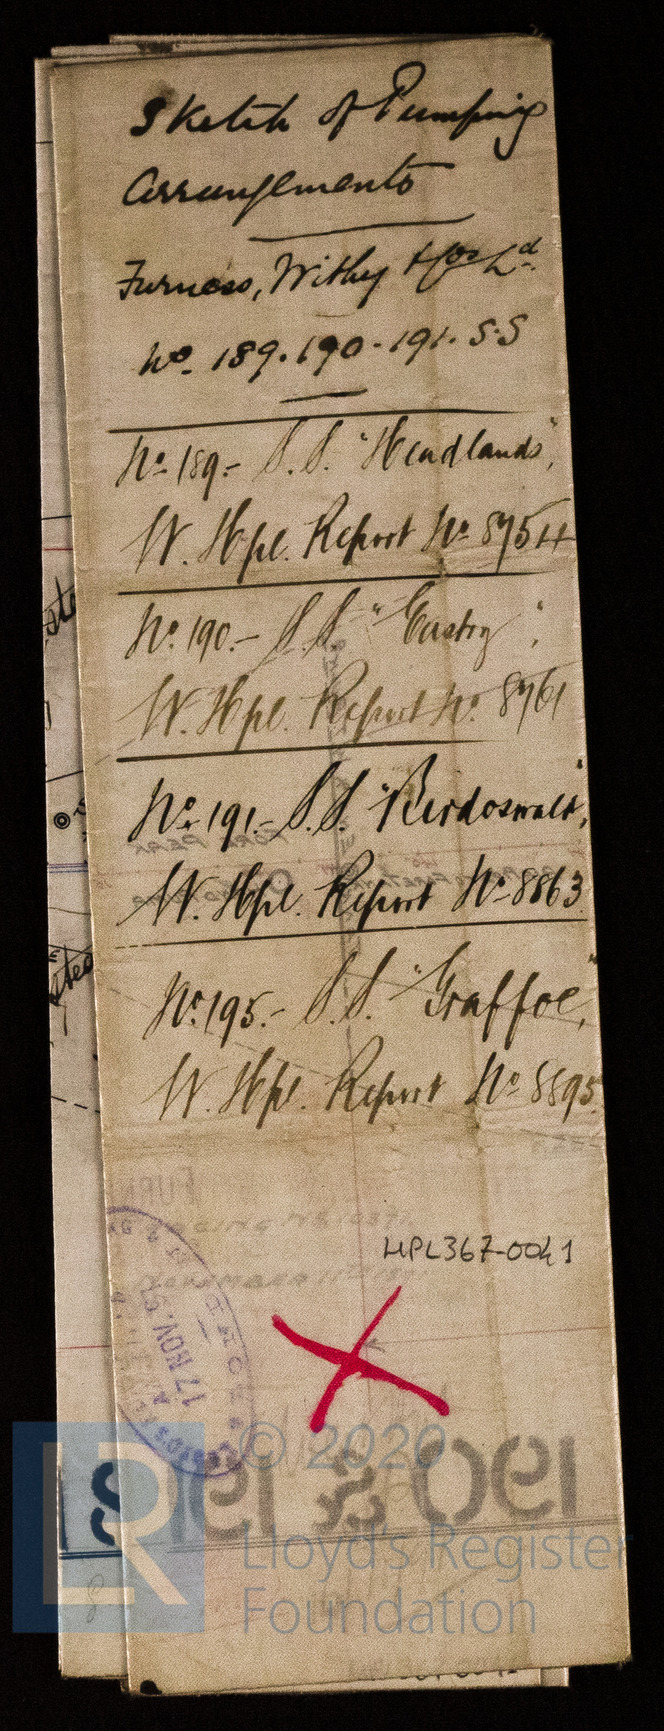 Sketch of Pumping
Arrangements
Furness, Withy & Co Ld
No. 189. 190. 191. S.S
No 189.- S.S. "Headlands",
W. Hpl. Report No 8754
No. 190.- S.S. "Eastry",
W. Hpl. Report No. 8761
No. 191.- S.S. "Birdoswald",
W. Hpl. Report No 8863
No. 195.- S.S. "Graffoe",
W. Hpl. Report No 8895
HPL367-0041
17 NOV. 95
190 & 191
© 2020
LR
Lloyd's Register
Foundation